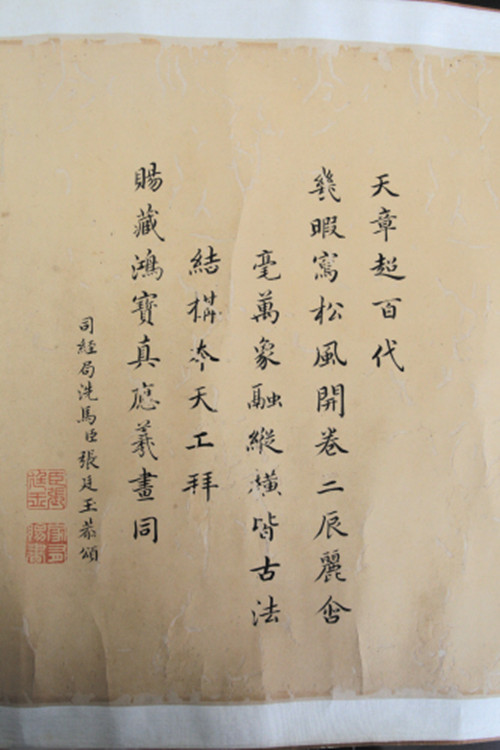 天章超百代
幾暇寫松風開卷二辰麗含
毫萬象融縱橫皆古法
結構天工拜
賜藏鴻寶真應羲畫同
司經局洗馬臣張廷玉恭頌
臣張廷玉